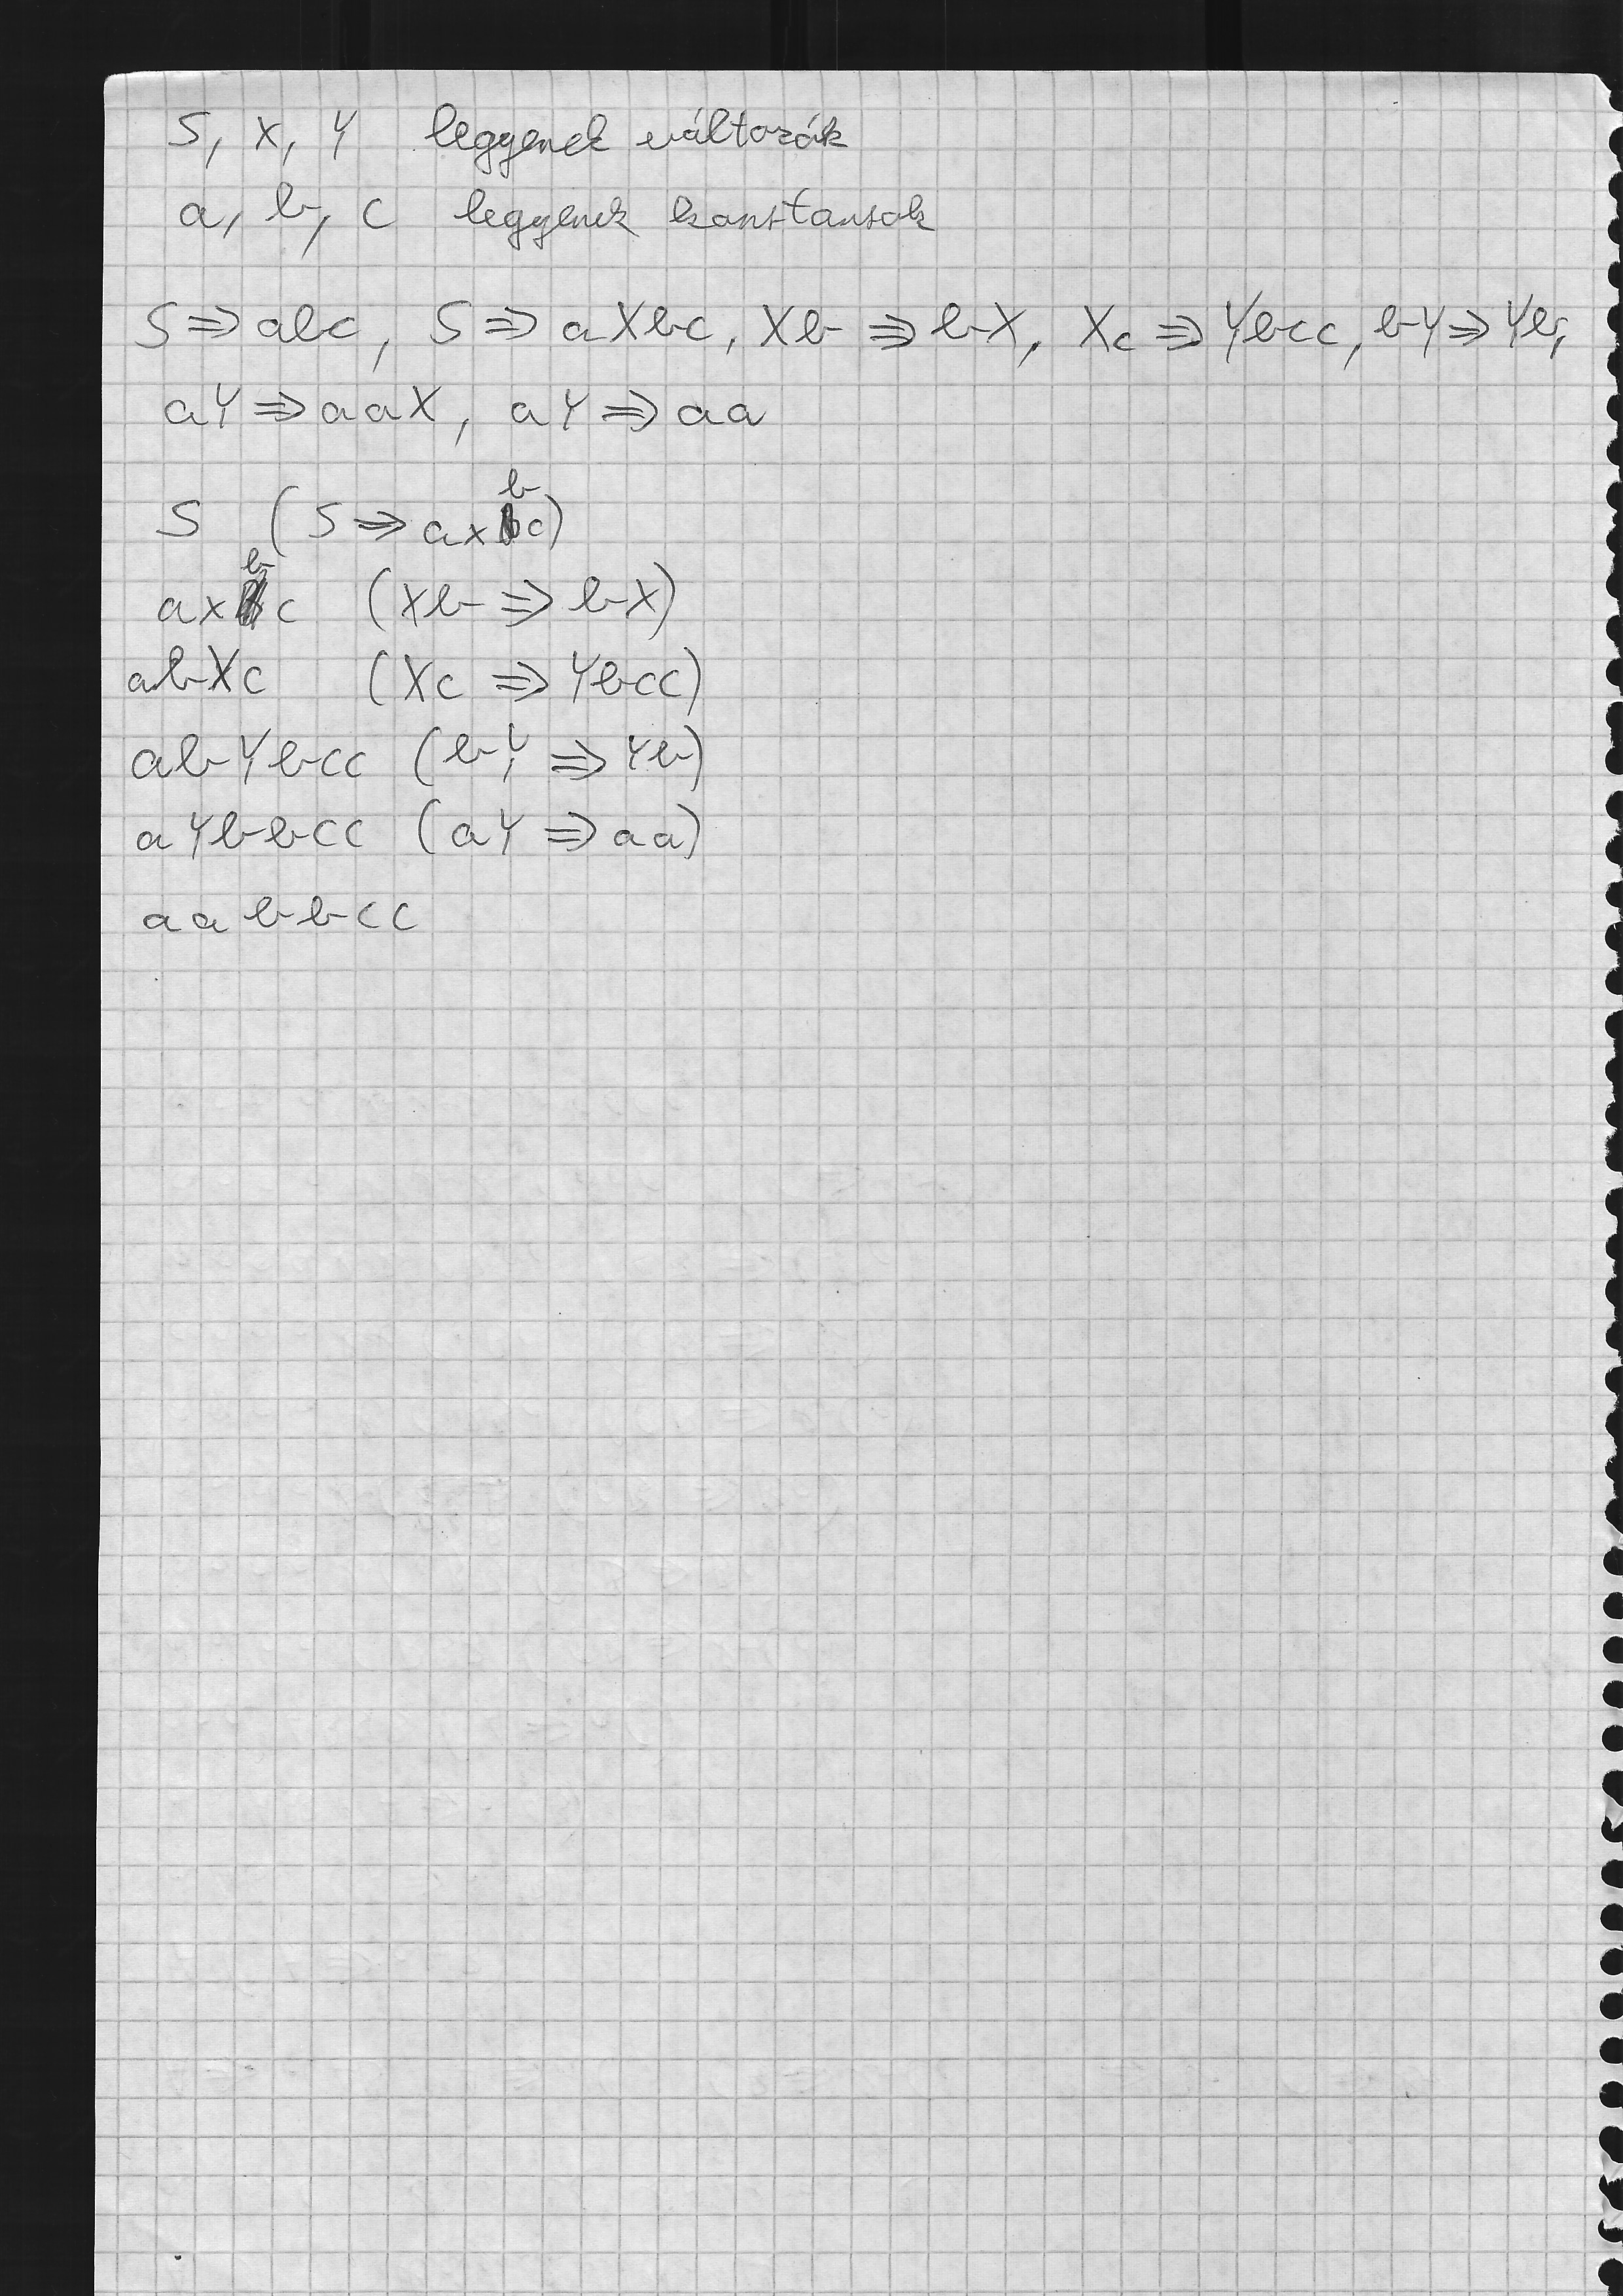 S, X, Y legyenek változók
a, b, c legyenek konstansok
S ⇒ abc, S ⇒ aXbc, Xb ⇒ bX, Xc ⇒ Ybcc, bY ⇒ Yb,
aY ⇒ aaX, aY ⇒ aa
S (S ⇒ axbc)
axbc (Xb ⇒ bX)
abXc (Xc ⇒ Ybcc)
abYbcc (bY ⇒ Yb)
aYbbcc (aY ⇒ aa)
aabbcc